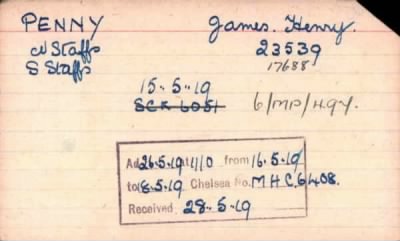 PENNY James. Henry.
N Staffs 23539
S Staffs 17688
15.5.19
SCK 6051 6/MP/H.94.
Ad 26.5.19 at 11/0 from 16.5.19
to 18.5.19 Chelsea No. MHC.6408.
Received 28.5.19